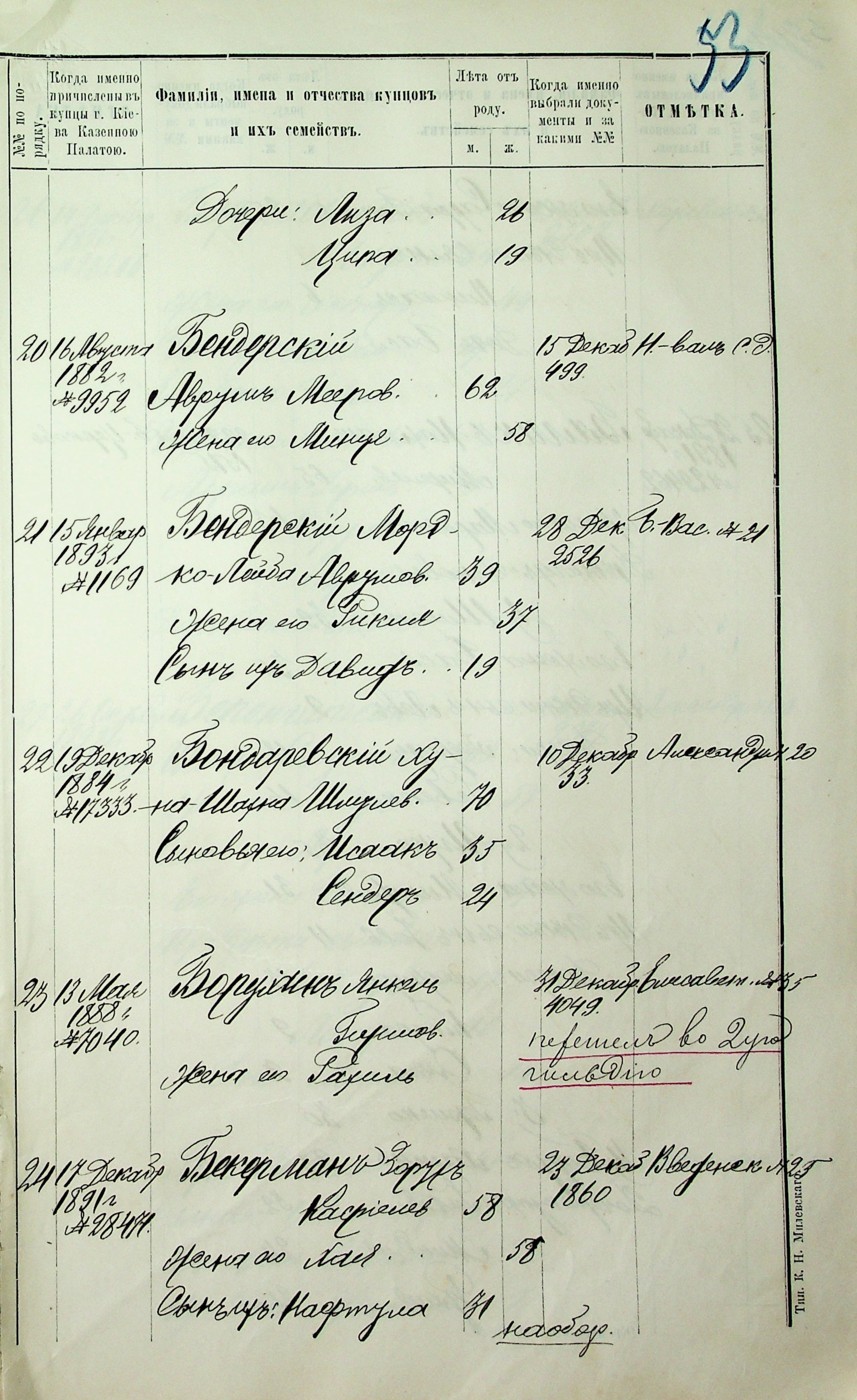 53
№№ по по-
рядку.
Когда именно
причислены въ
купцы г. Кіе-
ва Казенною
Палатою.
Фамиліи, имена и отчества купцовъ
и ихъ семействъ.
Лѣта отъ
роду.
м. ж.
Когда именно
выбрали доку-
менты и за
какими №№
ОТМѢТКА.
Дочери: Лиза . . 26
Ципа . . 19
20 16 Августа Бендерскій 15 Декаб Н.-валъ с. д.
1882 г 499.
№9952 Аврумъ Мееров. . 62
Жена его Минця . . 58
21 15 Январ БендерскійМорд- 28 Дек Б.-Вас. №21
1893 г 2526
№1169 ко-Лейба Аврумов. 39
Жена его Рикля 37
Сынъ ихъ Давидъ . . 19
22 19 Декабр Бондаревскій Ху- 10 Декабр Александр № 20
1884 г 33.
№17333. на-Шахна Шмулев. . 70
Сыновья его: Исаакъ 35
Сендеръ 24
23 13 Мая Борухинъ Янкель 31 Декабр Елисавет. №35
1888 г 4049.
№7040. Гиршов. перешелъ во 2ую
Жена его Рахиль гильдію
24 17 Декабр Бекерманъ 23 Декаб Введенск №25
1891 г 58 1860
№28474.
Жена его Хая . . 58
Сынъ ихъ: Нафтула 31
на обор.
Тип. К. Н. Милевскаго